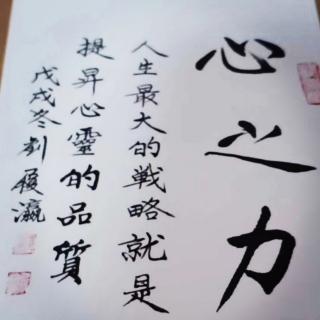 心之力
人生最大的戦略就是
提昇心靈的品質
戊戌冬刘履瀛